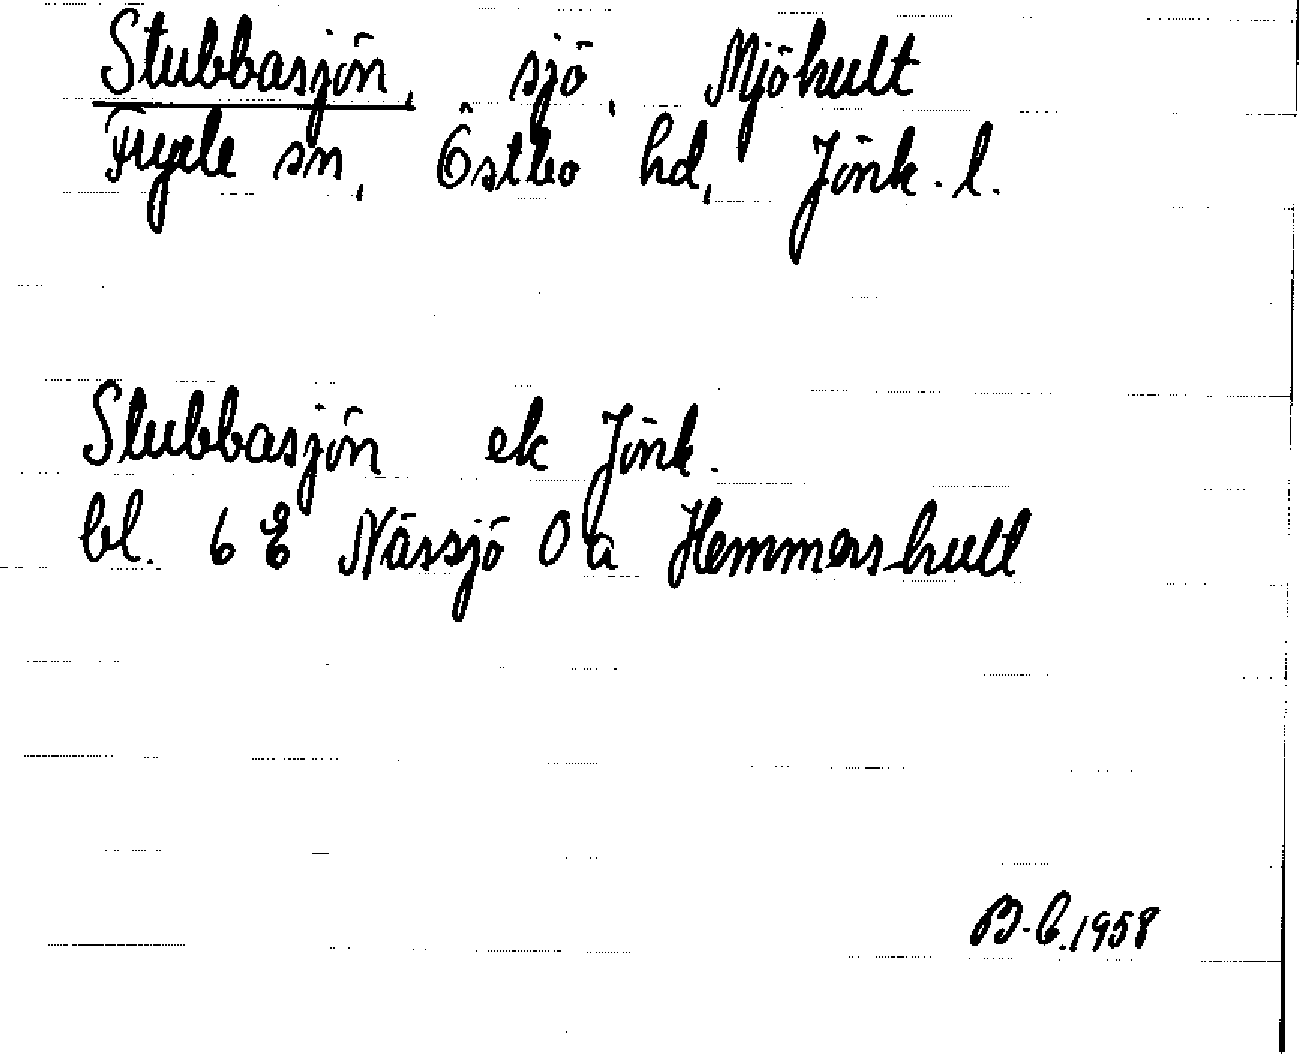 Stubbasjön, sjö, Mjöhult
Fryele sn, Östbo hd, Jönk. l.
Stubbasjön ek Jönk.
bl. 6 E Nässjö 0 a Hemmershult
B.C. 1958